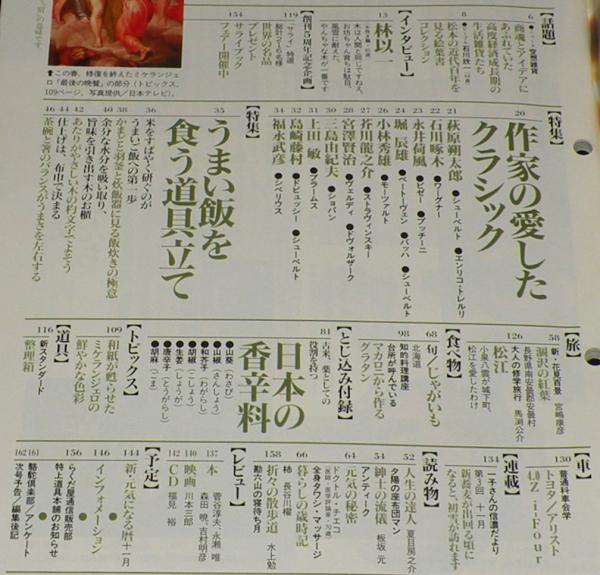 【話題】
6
8
商魂とアイデアに
あふれていた
高度経済成長期の
生活雑貨たち
松本の近代百年を
見る絵葉書
コレクション
【インタビュー】
13
林以一
木は人間と同じですねえ。
お坊ちゃん育ちは駄目。
風雪に耐えた、
やんちゃな木が一番です
【創刊5周年記念企画】
119
「サライ」特選
世界の名品
プレゼント
154
サライブック
フェア一開催中
⬆この春、修復を終えたミケランジェ
ロ「最後の晩餐」の部分(トピックス、
109ページ、写真提供/日本テレビ)。
【特集】
20
作家の愛した
クラシック
21
萩原朔太郎
●シューベルト ●エンリコ・トレルリ
22
石川啄木
●ワーグナー
23
永井荷風
●ビゼー ●プッチーニ
24
堀 辰雄
●ベートーヴェン ●バッハ ●シューベルト
26
小林秀雄
●モーツァルト
27
芥川龍之介
●ストラヴィンスキー
28
宮澤賢治
●ヴェルディ ●ドヴォルザーク
30
三島由紀夫
●ショパン
31
上田 敏
●ブラームス
32
島崎藤村
●ドビュッシー ●シューベルト
34
福永武彦
●シベリウス
【特集】
35
うまい飯を
食う道具立て
36
米をすばやく研ぐのが
うまいご飯への第一歩
38
かまどと羽釜と炊飯器に見る飯炊きの極意
40
余分な水分を吸い取り、
旨味を引き出す木のお櫃
42
あたりがやさしい木の杓文字でよそう
44
仕上げは、布巾で決まる
46
茶碗と箸のバランスがうまさを左右する
【旅】
58
新・花夏百景 宮嶋康彦
涸沢の紅葉
長野県南安曇郡安曇村
126
大人の修学旅行 馬渕公介
松江
小泉八雲が城下町、
松江を愛したわけ
【食べ物】
68
旬/じゃがいも
北海道
98
知的料理講座
台所が呼んでいる
マカロニから作る
グラタン
【とじ込み付録】
81
古来、薬としての
役割を持つ
日本の
香辛料
●山葵(わさび)
●山椒(さんしょう)
●和芥子(わがらし)
●胡椒(こしょう)
●生姜(しょうが)
●唐辛子(とうがらし)
●胡麻(ごま)
【トピックス】
109
和紙が甦らせた
ミケランジェロの
鮮やかな色彩
【道具】
116
新スタンダード
整理箱
【車】
130
普通科車会学
トヨタ/アリスト
4.0 Z i-Four
【連載】
134
一子さんの信濃だより
第3回 十一月
新蕎麦が出回る頃に
なると、初雪が訪れます
【読み物】
52
人生の達人 夏目房之介
夕陽の座布団マン
54
紳士の流儀 板坂 元
アンティーク
64
元気の秘密
ドクトル・チエコ
(医師・医学評論家・70歳)
全身タワシ・マッサージ
66
暮らしの歳時記
柿 長谷川櫂
158
折々の散歩道 水上勉
勘六山の寝待ち月
【レビュー】
137
本 菅谷淳夫、永瀬 唯
森田 暁、吉村明彦
140
映画 川本三郎
142
CD 福見 裕
【予定】
144
新・元気になる暦 十一月
146
インフォメーション
156
らくだ屋通信販売部
特上道具本舗のお知らせ
161
駱駝倶楽部/アンケート
162
次号予告/編集後記